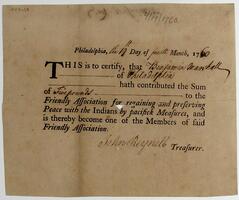 Philadelphia, the 19 Day of Month, 1760
THIS is to certify, that Benjamin Marshall
of Philadelphia
hath contributed the Sum
of Five pounds to the
Friendly Association for regaining and preserving
Peace with the Indians by pacifick Measures, and
is thereby become one of the Members of said
Friendly Association.
John Reynell Treasurer.